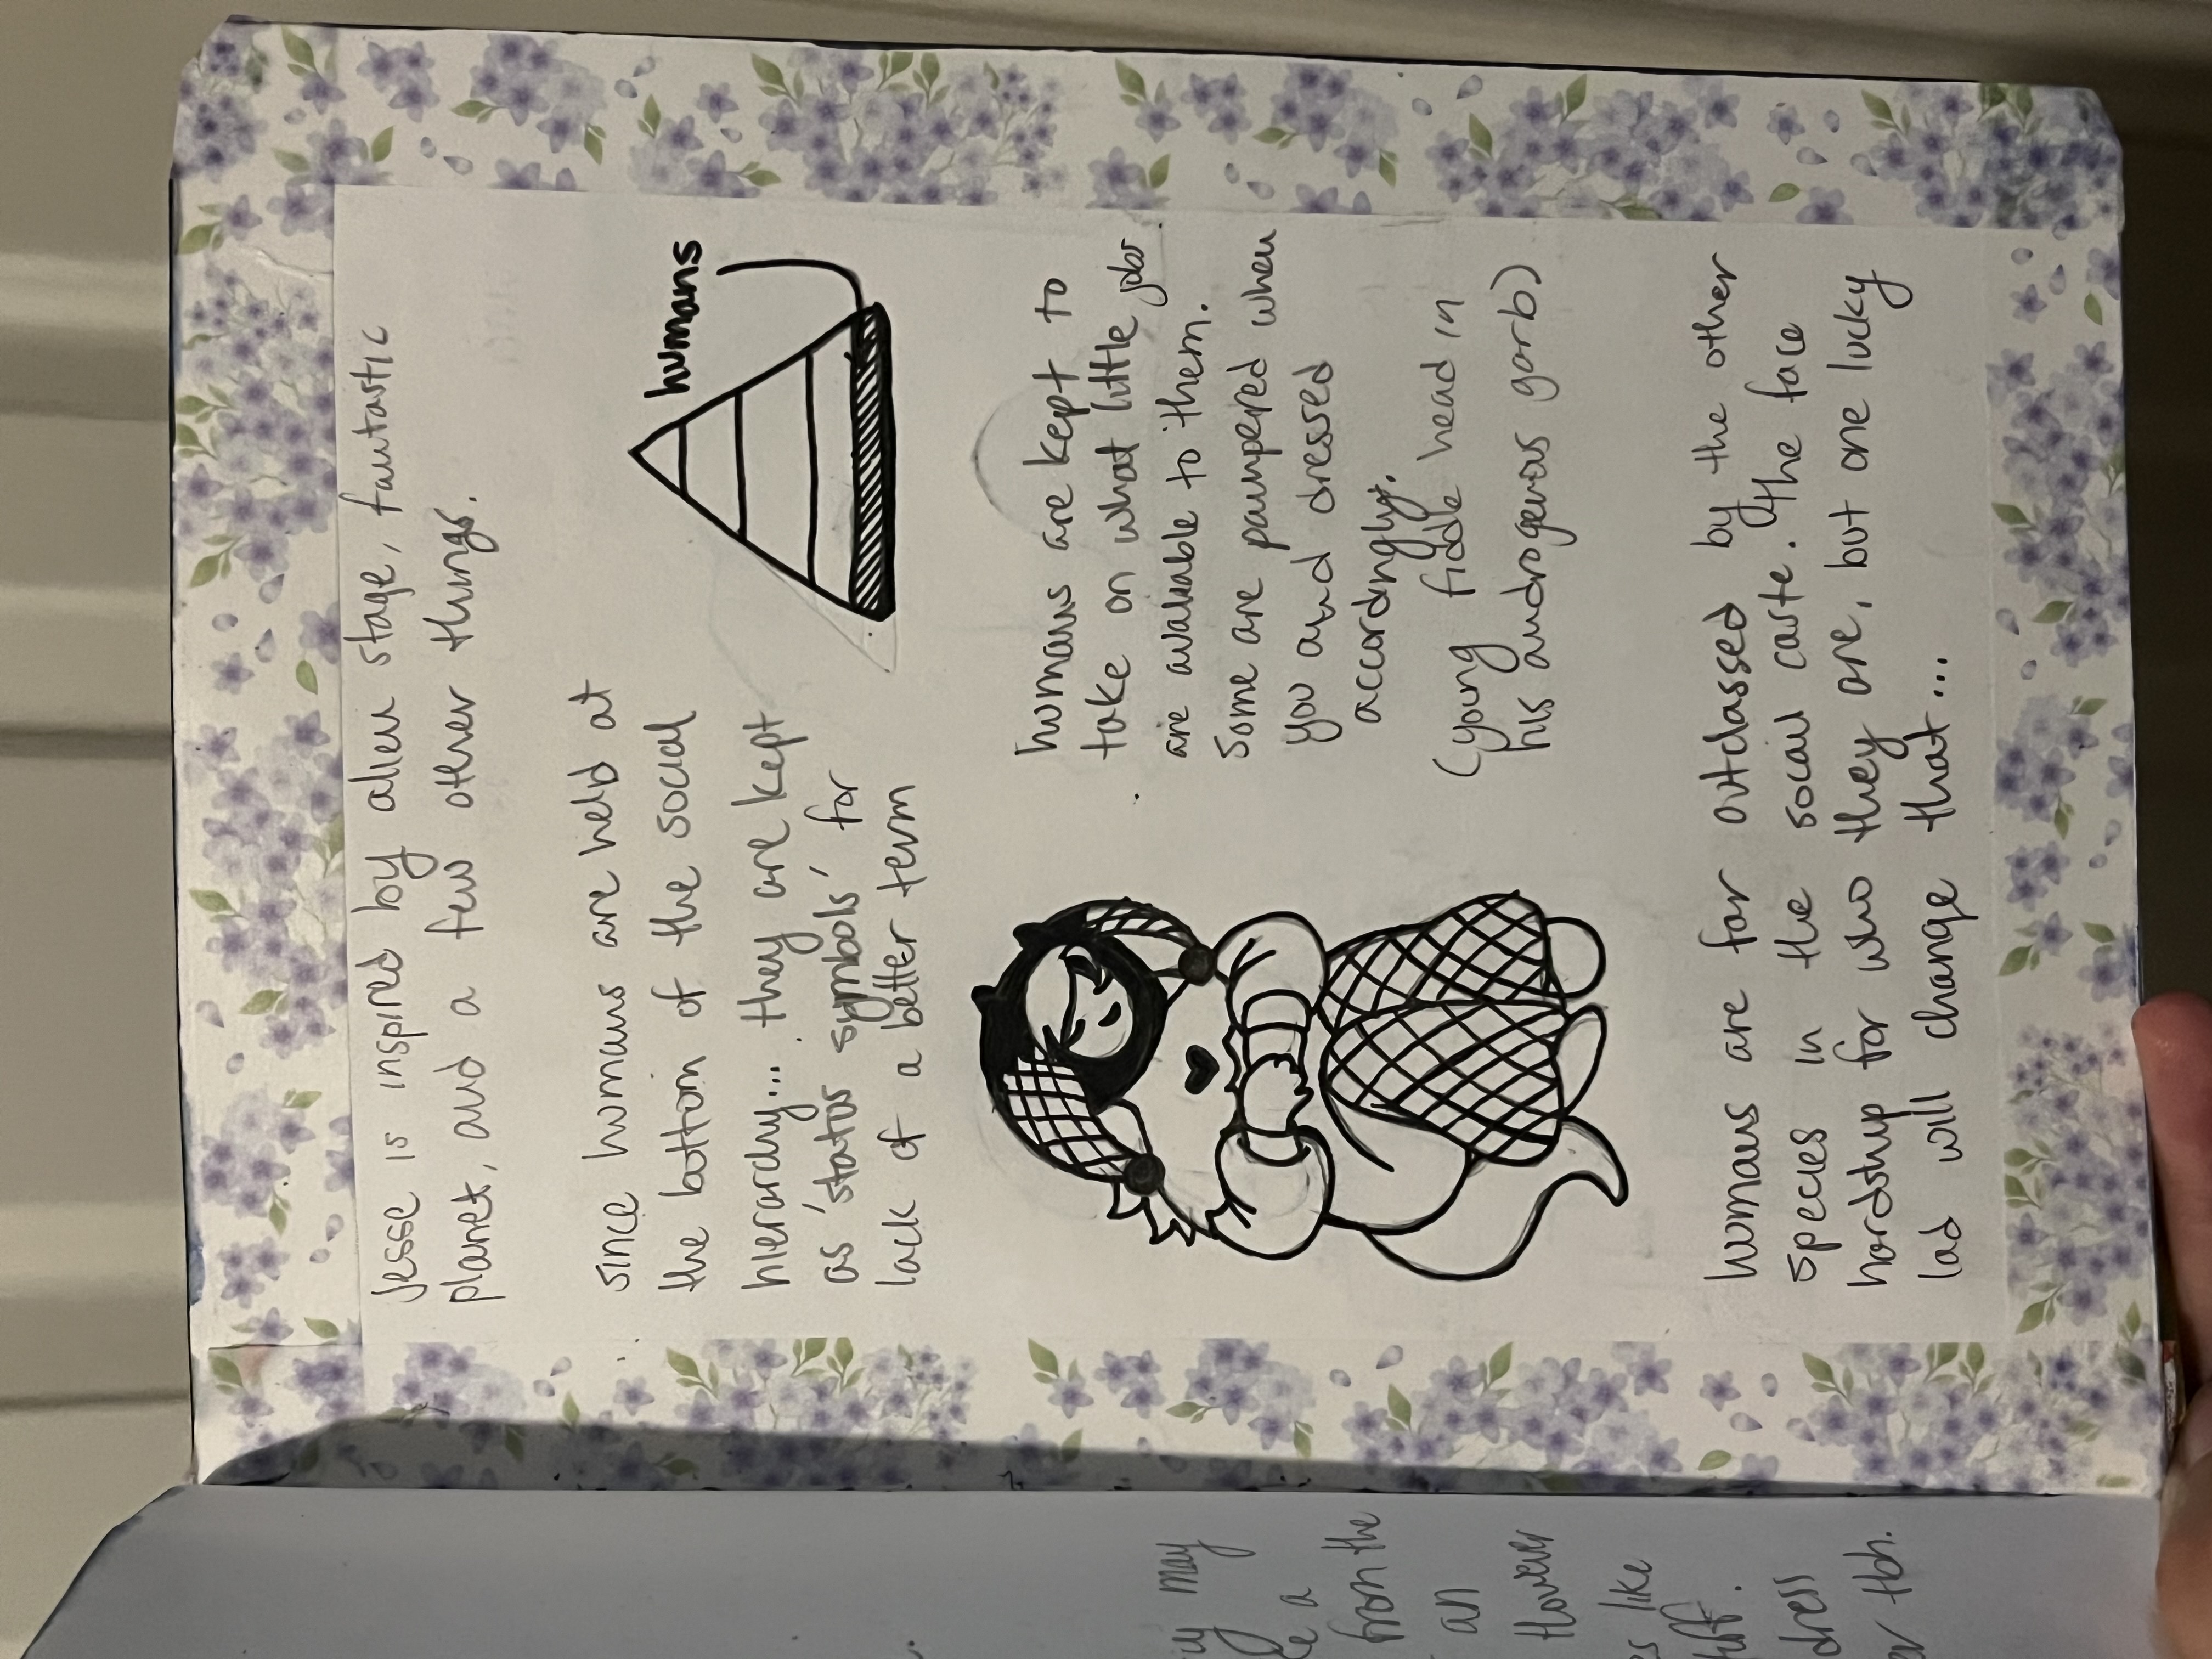 Jesse is inspired by alien stage, fantastic
planet, and a few other things.
since humans are held at
the bottom of the social
hierarchy... they are kept
as 'status symbols' for
lack of a better term
humans
humans are kept to
take on what little jobs
are avaliable to them.
Some are pampered when
you and dressed
accordingly.
(young fiddle head in
his androgenous garb)
humans are far outclassed by the other
species in the socail caste. The face
hardship for who they are, but one lucky
lad will change that...
may
a
from the
an
However
like
dress
tbh.